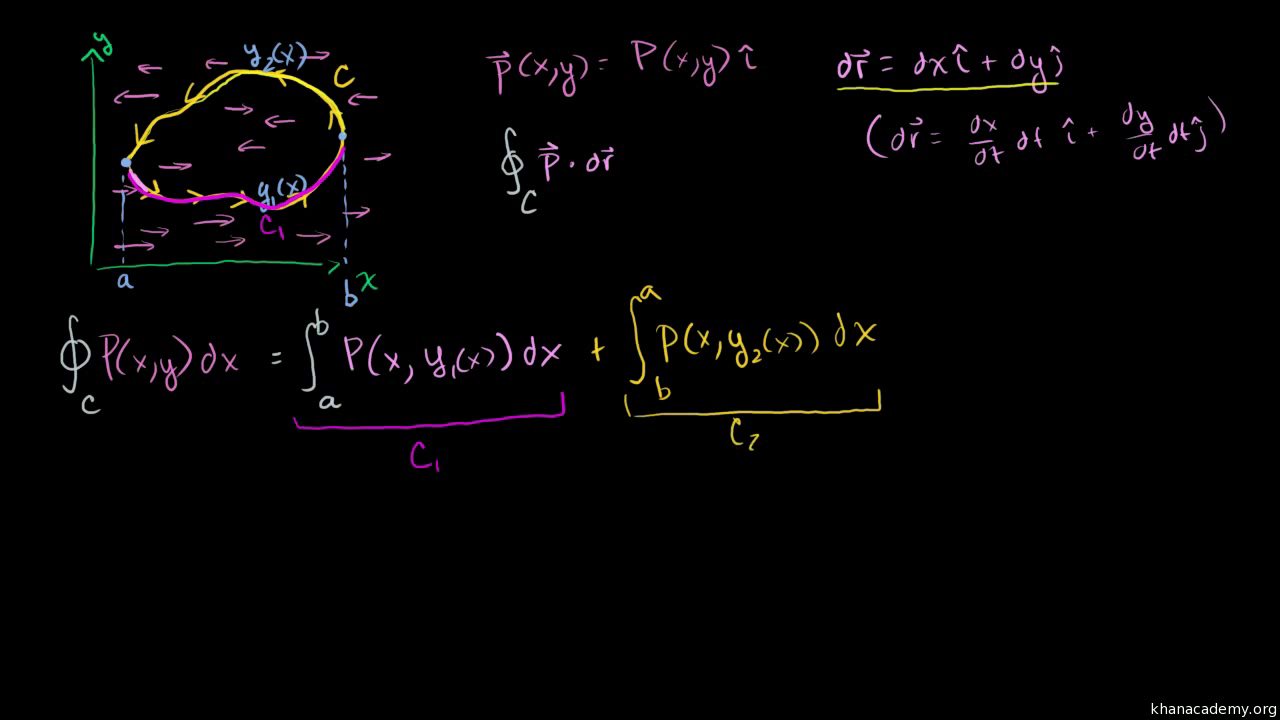 y
y₂(x)
C
y₁(x)
C₁
a
b
x
P⃗(x,y) = P(x,y) î
dr⃗ = dx î + dy ĵ
(dr⃗ = dx/dt dt î + dy/dt dt ĵ)
∮_C P⃗ · dr⃗
∮_C P(x,y) dx = ∫_a^b P(x, y₁(x)) dx + ∫_b^a P(x, y₂(x)) dx
C₁
C₂
khanacademy.org